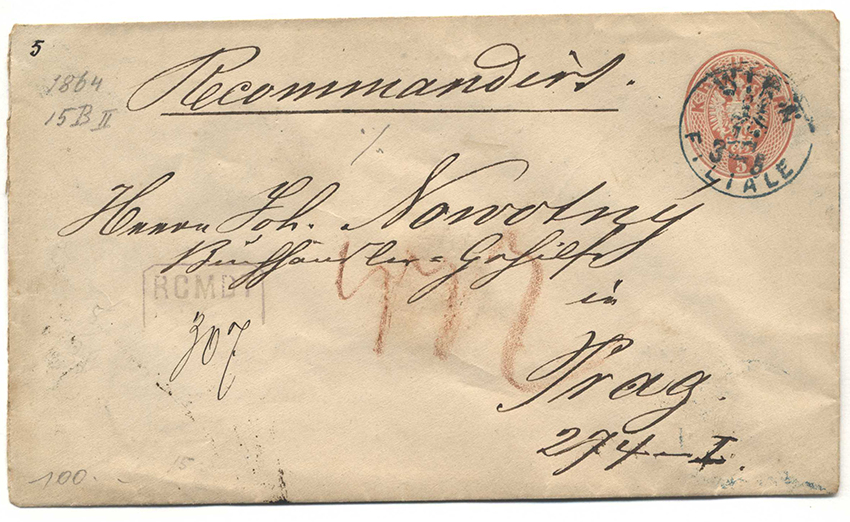 5
1864
15 B II
Recommandirt.
WIEN
FILIALE
5
Herrn Joh. Nowotny
Buchhändler=Gehilfe
in
RCMDT
307
Prag.
274-I.
15
100.